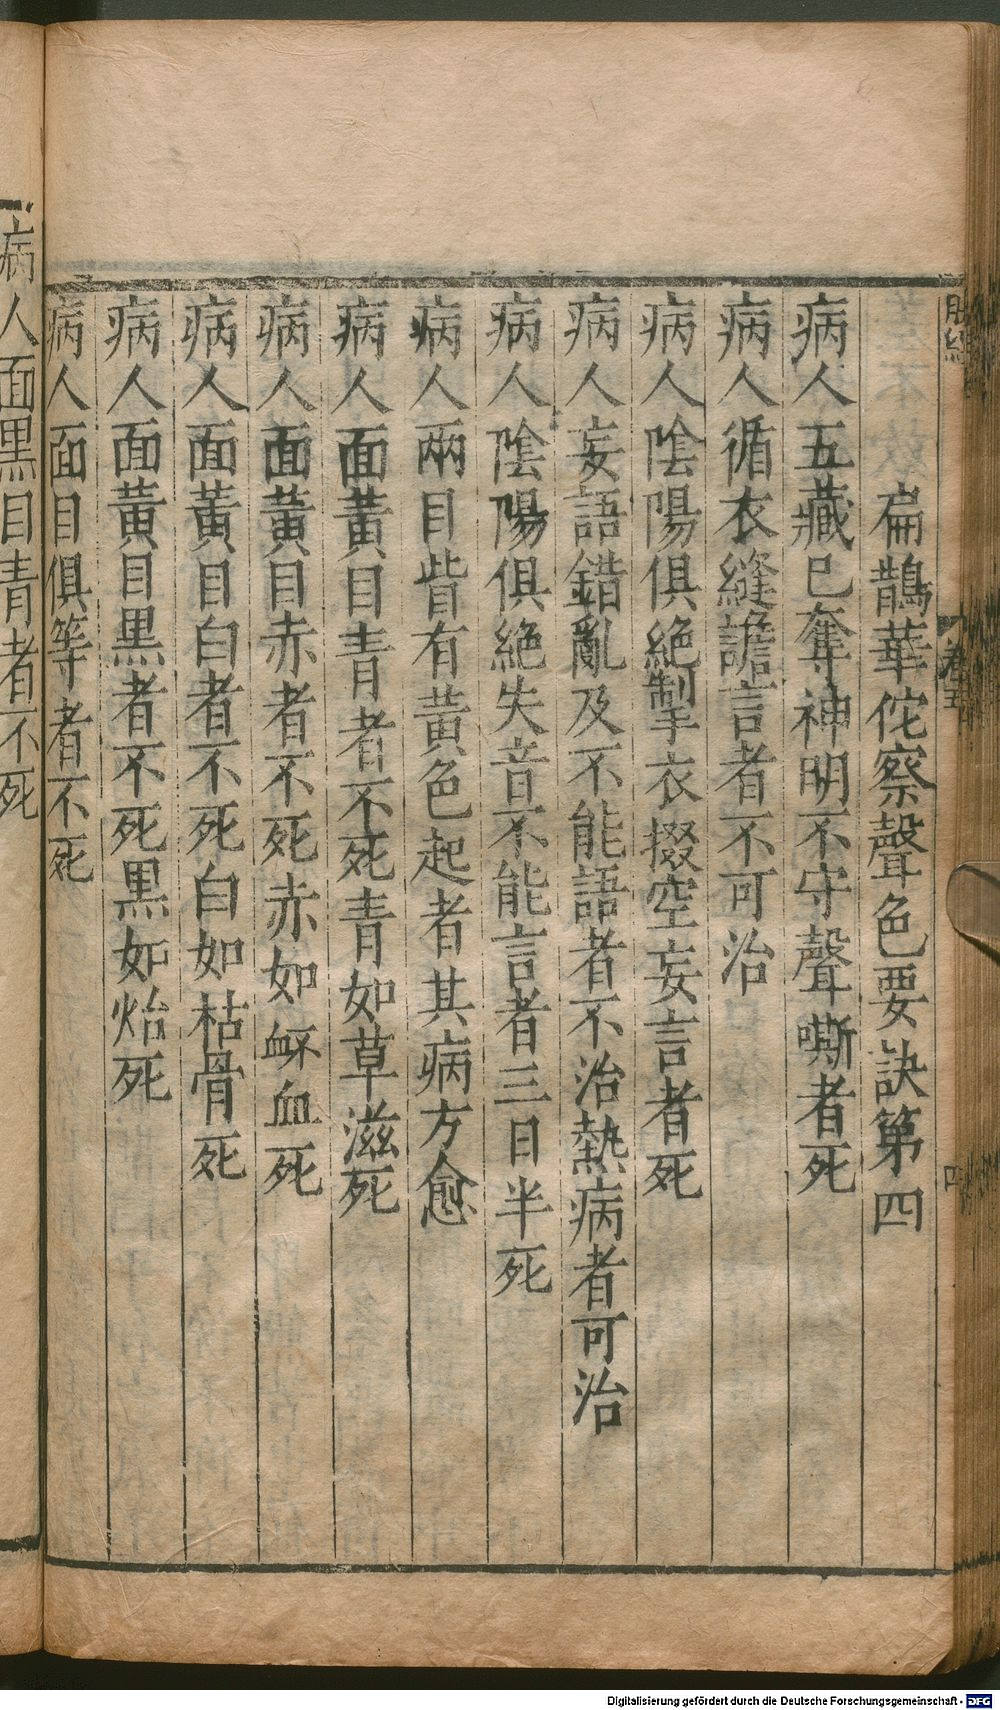 脉經
卷五
四
扁鵲華佗察聲色要訣第四
病人五藏已奪神明不守聲嘶者死
病人循衣縫譫言者不可治
病人陰陽俱絶掣衣掇空妄言者死
病人妄語錯亂及不能語者不治熱病者可治
病人陰陽俱絶失音不能言者三日半死
病人兩目眥有黃色起者其病方愈
病人面黃目青者不死青如草滋死
病人面黃目赤者不死赤如衃血死
病人面黃目白者不死白如枯骨死
病人面黃目黒者不死黒如炲死
病人面目俱等者不死
病人面黒目青者不死
Digitalisierung gefördert durch die Deutsche Forschungsgemeinschaft - DFG